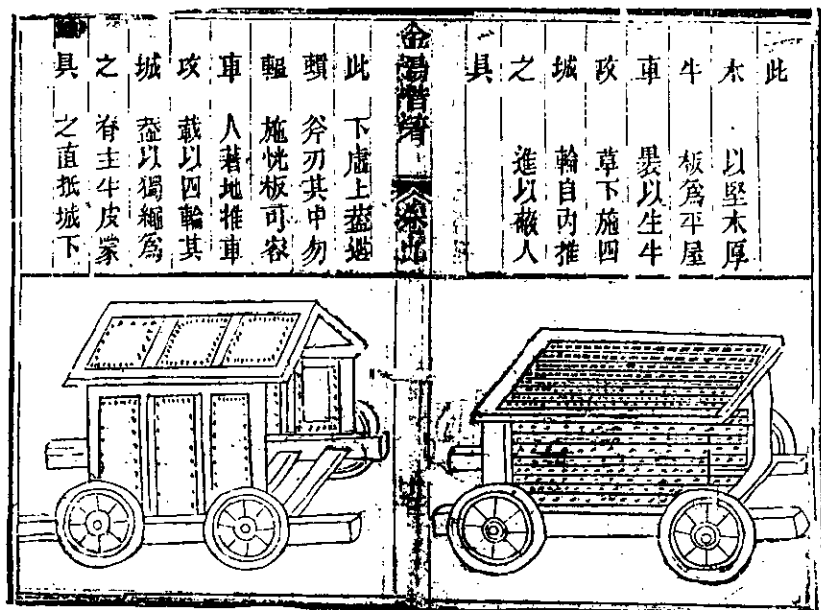 此
木 以堅木厚
牛 板爲平屋
車 裹以生牛
攻 革下施四
城 輪自內推
之 進以蔽人
具
金湯借箸
此 下虛上蓋
轒 斧刃其中勿
轀 施桄板可容
車 人著地推車
攻 載以四輪其
城 蓋以獨繩爲
之 脊主牛皮蒙
具 之直抵城下